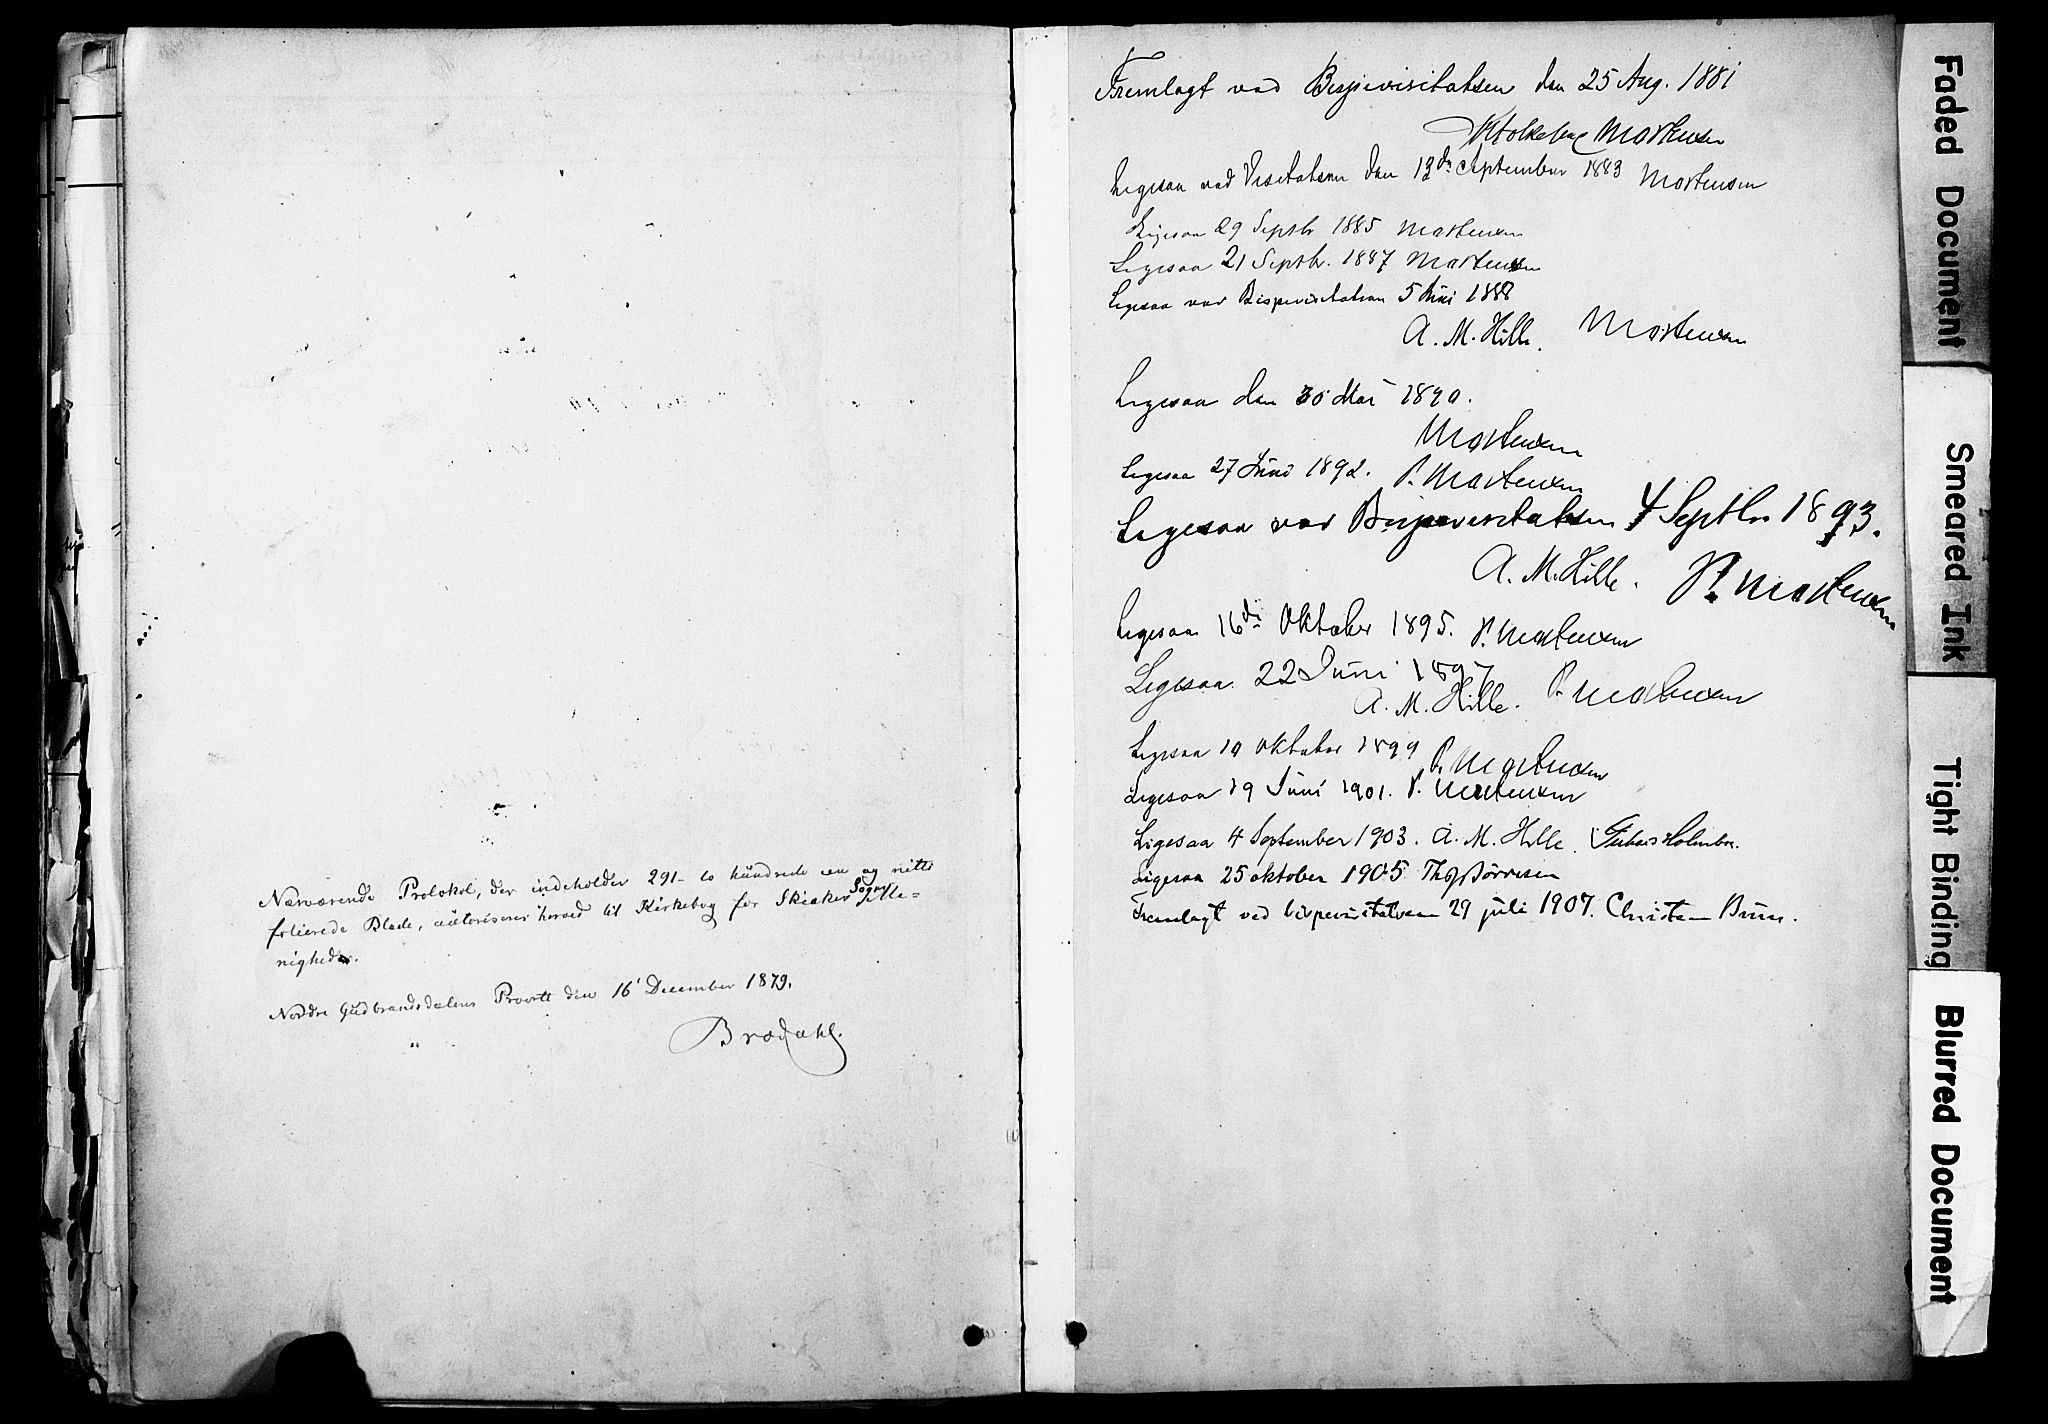 Nærværende Protokol, der indeholder 291 - to hundrede en og nitti
folierede Blade, autoriseres herved til Kirkebog for Skiaker Sogns Ille=
nigheder.
Nordre Gudbrandsdalens Provsti den 16' December 1879.
Brodahl.
Fremlagt ved Bispevisitatsen den 25 Aug. 1881
Mortensen
Ligesaa ved Visitatsen den 13de September 1883 Mortensen
Ligesaa 29 Septbr 1885 Mortensen
Ligesaa 21 Septbr. 1887 Mortensen
Ligesaa ved Bispevisitatsen 5 Juni 1888
A. M. Hille. Mortensen
Ligesaa den 30 Mai 1890.
Mortensen
Ligesaa 27 Juni 1892. P. Mortensen
Ligesaa ved Bispevisitatsen 4 Septbr 1893.
A. M. Hille. P. Mortensen
Ligesaa 16de Oktober 1895. P. Mortensen
Ligesaa 22 Juni 1897
A. M. Hille. P. Mortensen
Ligesaa 10 Oktober 1899 P. Mortensen
Ligesaa 19 Juni 1901. P. Mortensen
Ligesaa 4 September 1903. A. M. Hille.
Ligesaa 25 oktober 1905 Thv Børresen
Fremlagt ved bispevisitatsen 29 juli 1907. Christen Brun.
Faded Document
Smeared Ink
Tight Binding
Blurred Document